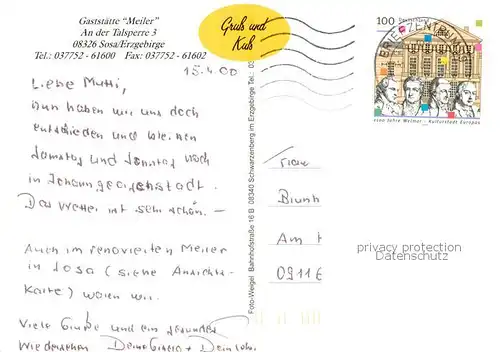 Gaststätte "Meiler"
An der Talsperre 3
08326 Sosa/Erzgebirge
Tel.: 037752 - 61600 Fax: 037752 - 61602
Gruß und
Kuß
15.4.00
Liebe Mutti,
nun haben wir uns doch
entschieden und bleiben
Samstag und Sonntag noch
in Johanngeorgenstadt.
Das Wetter ist sehr schön. -
Auch im renovierten Meiler
in Sosa (siehe Ansichts-
karte) waren wir.
Viele Grüße und ein gesundes
Wiedersehen Deine Gisela + Dein
Foto-Weigel Bahnhofstraße 16 B 08340 Schwarzenberg im Erzgebirge Tel.: 03
100 Deutschland
BRIEFZENTRUM
1100 Jahre Weimar - Kulturstadt Europas
Frau
Am
0911
privacy protection
Datenschutz